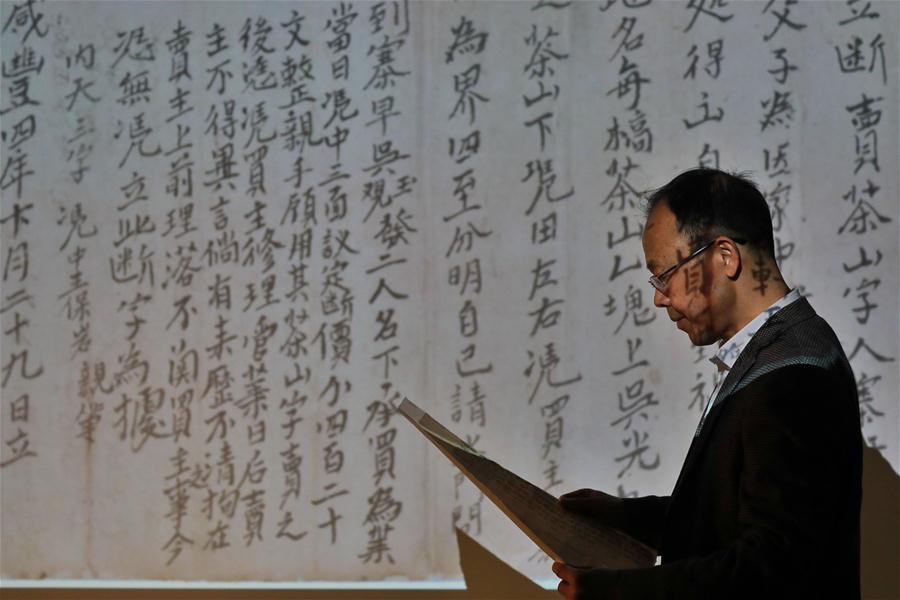 立断賣茶山字人寨
父子為因家中
处得
地名每槁茶山一塊上吳光
茶山下凴田左右凴買主
為界四至分明自己請門問
到寨早吳玉發二人名下承買為業
當日凴中三面議定断價小四百二十
文整親手顧用其茶山字賣之
後凴買主修理管業日后賣
主不得異言倘有来歷不清拘在
賣主上前理落不関買主事今
恐無凴立此断字為據
内天三字 凴中 保岩 親筆
咸豐四年十月二十九日立